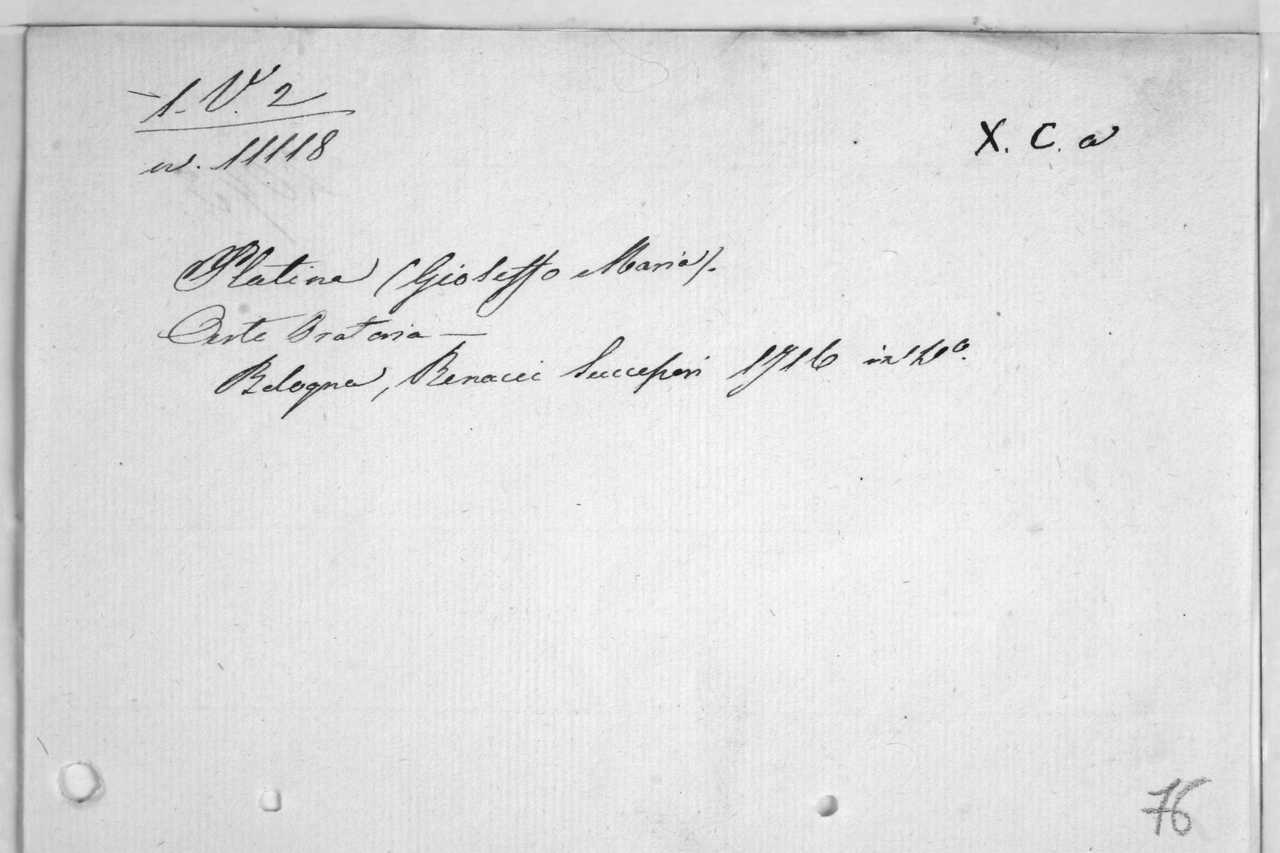 1. V. 2
n. 11118
X. C. a
Platina (Gioseffo Maria).
L'arte Oratoria —
Bologna, Benacci Successori 1716 in 4°.
76